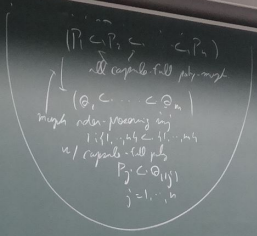 (P₁ ⊂ P₂ ⊂ ⋯ ⊂ Pₙ)
all capsule-full poly-morph
(Q₁ ⊂ ⋯ ⊂ Qₘ)
morph order-preserving inj
{1,⋯,n} ⊂ {1,⋯,m}
w/ capsule-full poly
Pⱼ ⊂ Q_{ι(j)}
j=1,⋯,n